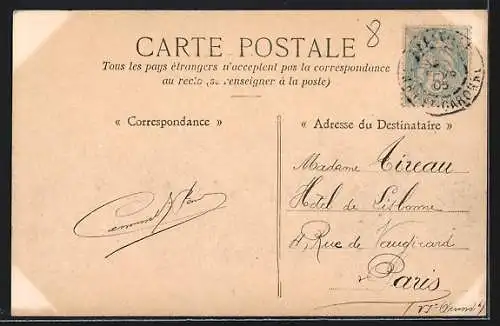 CARTE POSTALE
8
Tous les pays étrangers n'acceptent pas la correspondance
au recto (se renseigner à la poste)
« Correspondance »
« Adresse du Destinataire »
Madame Tireau
Hôtel de Lisbonne
4, Rue de Vaugirard
Paris